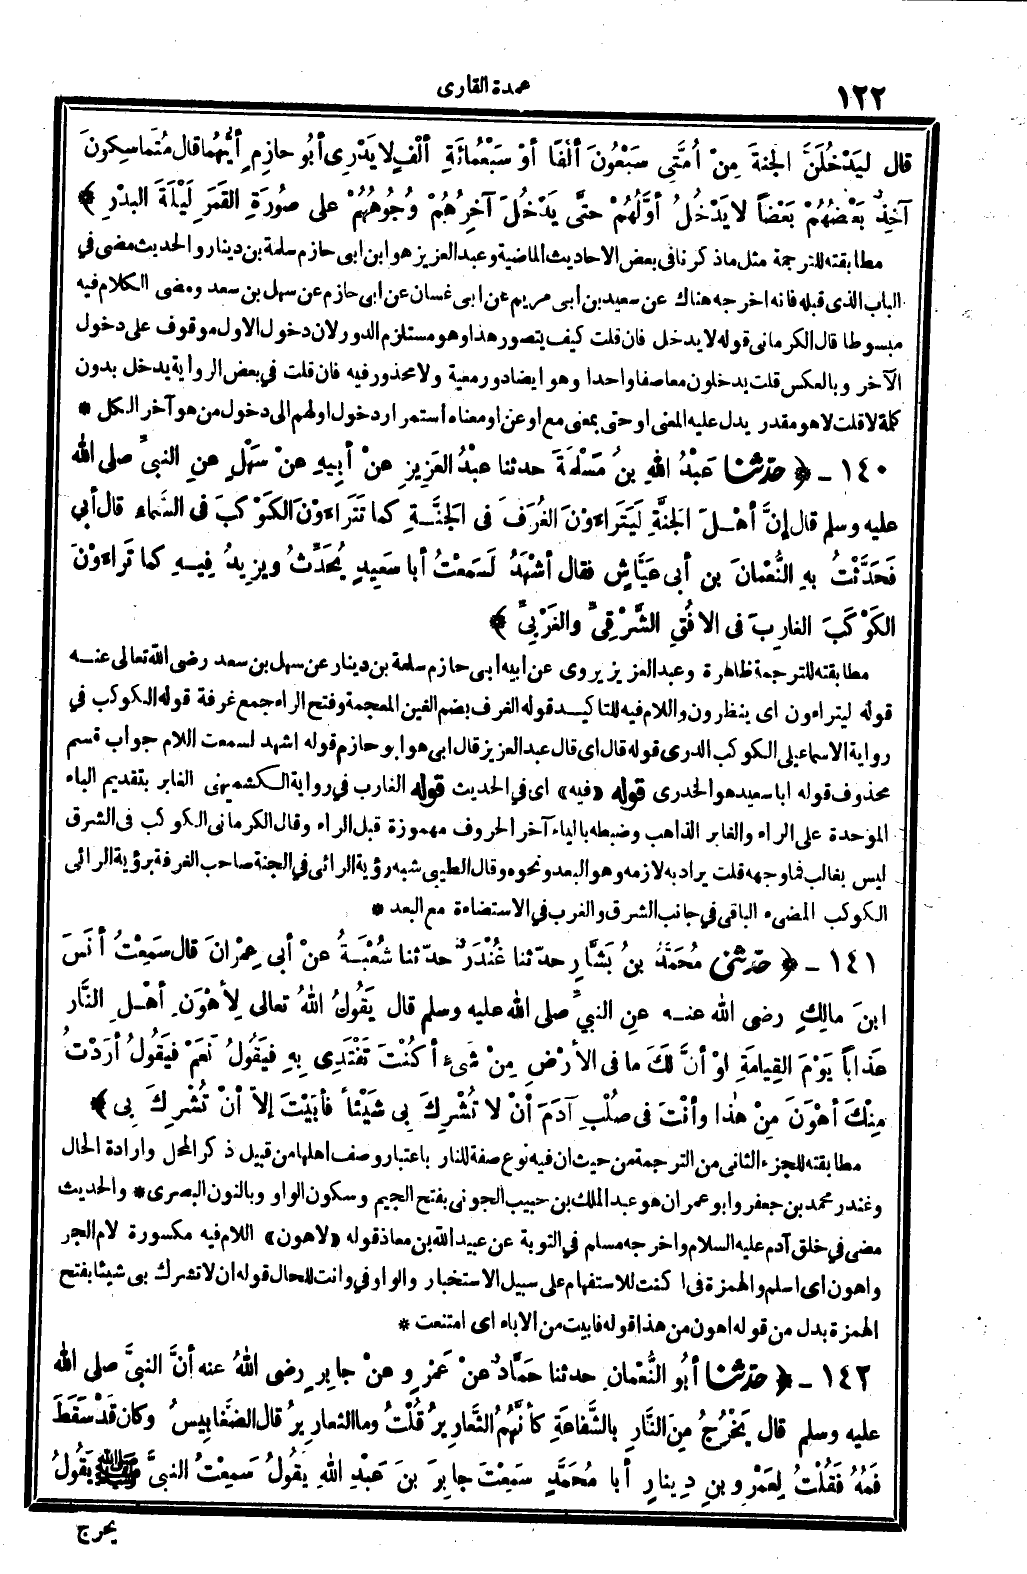 ١٢٢
عمدة القارى
قال لَيَدْخُلَنَّ الجنةَ مِنْ أُمَّتِى سَبْعُونَ أَلْفًا أوْ سَبْعُمائَةِ ألْفٍ لا يَدْرِى أبُو حازِمٍ أيُّهُما قال مُتَماسِكونَ
آخِذٌ بَعْضُهُمْ بَعْضاً لا يَدْخُلُ أوَّلُهُمْ حتَّى يَدْخُلَ آخِرُهُمْ وُجُوهُهُمْ على صُورَةِ القَمَرِ لَيْلَةَ البَدْرِ ﴾
مطابقته للترجمة مثل ماذكرنا فى بعض الاحاديث الماضية وعبد العزيز هو ابن ابى حازم سلمة بن دينار والحديث مضى في
الباب الذى قبله فانه اخرجه هناك عن سعيد بن أبى مريم عن ابى غسان عن ابى حازم عن سهل بن سعد ومضى الكلام فيه
مبسوطا قال الكرمانى قوله لا يدخل فان قلت كيف يتصور هذا وهو مستلزم الدور لان دخول الاول موقوف على دخول
الآخر وبالعكس قلت يدخلون معا صفا واحدا وهو ايضا دور معية ولا محذور فيه فان قلت في بعض الرواية يدخل بدون
كلمة لا قلت لا هو مقدر يدل عليه المعنى او حتى بمعنى مع او عن او معناه أستمرار دخول اولهم الى دخول من هو آخر الكل *
١٤٠ - ﴿ حدّثنا عَبْدُ اللهِ بنُ مَسْلَمَةَ حدثنا عبْدُ العَزِيزِ عنْ أبِيهِ عنْ سَهْلٍ عنِ النبيِّ صلى الله
عليه وسلم قال إنَّ أهْـلَ الجَنةِ لَيَتَراءَوْنَ الغُرَفَ فى الجَنَّـةِ كما تَتَراءَوْنَ الكَوْكَبَ فى السَّماءِ قال أبي
فَحَدَّثْتُ بِهِ النُّعْمانَ بن أبى عَيَّاشٍ فقال أشْهَدُ لَسَمِعْتُ أبا سَعِيدٍ يُحَدِّثُ ويزِيدُ فِيـهِ كما تَراءَوْنَ
الكَوْكَبَ الغارِبَ فى الافُقِ الشَّرْقِىِّ والغَرْبِىِّ ﴾
مطابقته للترجمة ظاهرة وعبد العزيز يروى عن ابيه ابى حازم سلمة بن دينار عن سهل بن سعد رضى الله تعالى عنـه
قوله ليتراءون اى ينظرون واللام فيه للتاكيـد قوله الغرف بضم الغين المعجمة وفتح الراء جمع غرفة قوله الكوكب في
رواية الاسماعيلى الكوكب الدرى قوله قال اى قال عبد العزيز قال ابى هو ابو حازم قوله اشهد لسمعت اللام جواب قسم
محذوف قوله ابا سعيد هو الخدرى قوله «فيه» اى في الحديث قوله الغارب في رواية الكشميهنى الغابر بتقديم الباء
الموحدة على الراء والغابر الذاهب وضبطه بالياء آخر الحروف مهموزة قبل الراء وقال الكرمانى الكوكب فى الشرق
ليس بغالب فما وجهه قلت يراد به لازمه وهو البعد ونحوه وقال الطيبى شبه رؤية الرائى في الجنة صاحب الغرفة برؤية الرائى
الكوكب المضىء الباقى في جانب الشرق والغرب في الاستضاءة مع البعد *
١٤١ - ﴿ حدّثنى مُحَمَّدُ بنُ بَشَّارٍ حدّثنا غُنْدَرٌ حدّثنا شُعْبَـةُ عنْ أبى عِمْرانَ قال سَمِعْتُ أنَسَ
ابنَ مالِكٍ رضى الله عنـه عنِ النبيِّ صلى الله عليه وسلم قال يَقُولُ اللهُ تعالى لِأهْوَنِ أهْـلِ النَّارِ
عَذاباً يَوْمَ القِيامَةِ لوْ أنَّ لَكَ ما فى الأرْضِ مِنْ شَىْءٍ أكُنْتَ تَفْتَدِى بِهِ فيَقُولُ نَعَمْ فيَقُولُ أرَدْتُ
مِنْكَ أهْوَنَ مِنْ هٰذا وأنْتَ فى صُلْبِ آدَمَ أنْ لا تُشْرِكَ بِى شَيْئاً فأبَيْتَ إلاّ أنْ تُشْرِكَ بِى ﴾
مطابقته للجزء الثانى من الترجمة من حيث ان فيه نوع صفة للنار باعتبار وصف اهلها من قبيل ذكر المحل وارادة الحال
وغندر محمد بن جعفر وابو عمران هو عبد الملك بن حبيب الجونى بفتح الجيم وسكون الواو وبالنون البصرى * والحديث
مضى في خلق آدم عليه السلام واخرجه مسلم في التوبة عن عبيد الله بن معاذ قوله «لاهون» اللام فيه مكسورة لام الجر
واهون اى اسلم والهمزة فى اكنت للاستفهام على سبيل الاستخبار والواو في وانت للحال قوله ان لا تشرك بى شيئا بفتح
الهمزة بدل من قوله اهون من هذا قوله فابيت من الاباء اى امتنعت *
١٤٢ - ﴿ حدّثنا أبُو النُّعْمانِ حدثنا حَمَّادٌ عنْ عَمْرٍو عنْ جابِرٍ رضى اللهُ عنه أنَّ النبيَّ صلى الله
عليه وسلم قال يَخْرُجُ مِنَ النَّارِ بالشَّفاعَةِ كأنَّهُمُ الثَّعارِيرُ قُلْتُ وما الثعارِيرُ قال الضَّغابِيسُ وكان قَدْ سَقَطَ
فَمُهُ فَقُلْتُ لِعَمْرِو بنِ دِينارٍ أبا مُحَمَّدٍ سَمِعْتَ جابِرَ بنَ عَبْدِ اللهِ يَقُولُ سَمِعْتُ النبيَّ ﷺ يَقُولُ
يخرج